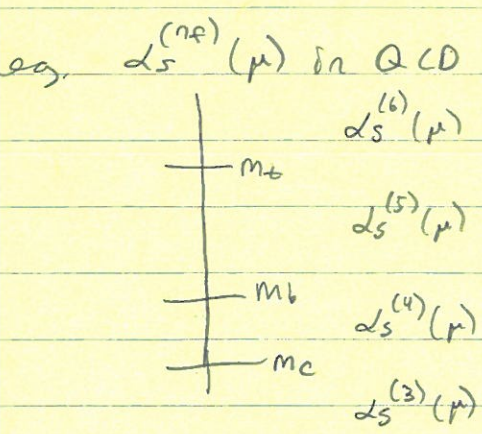 eg. αs^(nf) (μ) in QCD
αs^(6) (μ)
mt
αs^(5) (μ)
mb
αs^(4) (μ)
mc
αs^(3) (μ)